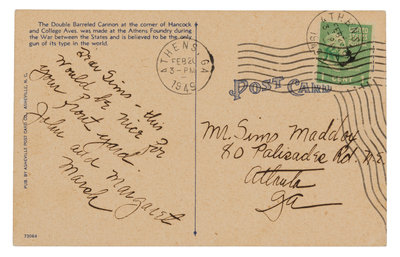 The Double Barreled Cannon at the corner of Hancock
and College Aves. was made at the Athens Foundry during
the War between the States and is believed to be the only
gun of its type in the world.
Dear Sims - this
would be nice for
your front yard.
John and Margaret
March
PUB. BY ASHEVILLE POST CARD CO., ASHEVILLE, N. C.
73084
ATHENS, GA.
FEB 20
3-PM
1945
POST CARD
ATHENS
CENT
Mr. Sims Maddox
80 Palisades Rd. N.E.
Atlanta
Ga